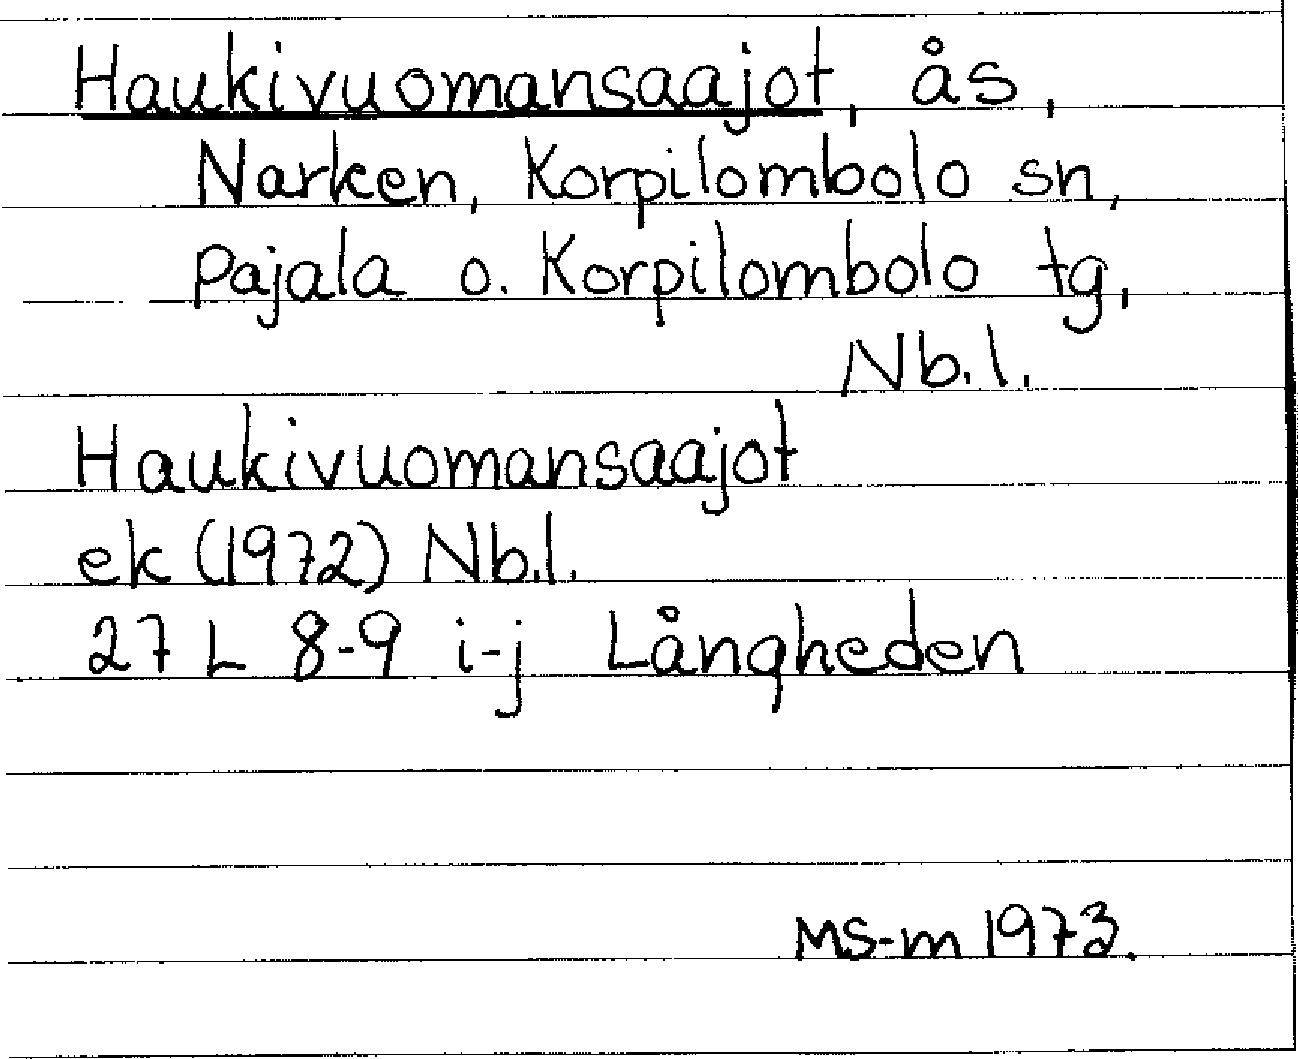 Haukivuomansaajot, ås,
Narken, Korpilombolo sn,
Pajala o. Korpilombolo tg,
Nb.l.
Haukivuomansaajot
ek (1972) Nb.l.
27 L 8-9 i-j Långheden
MS-m 1973.